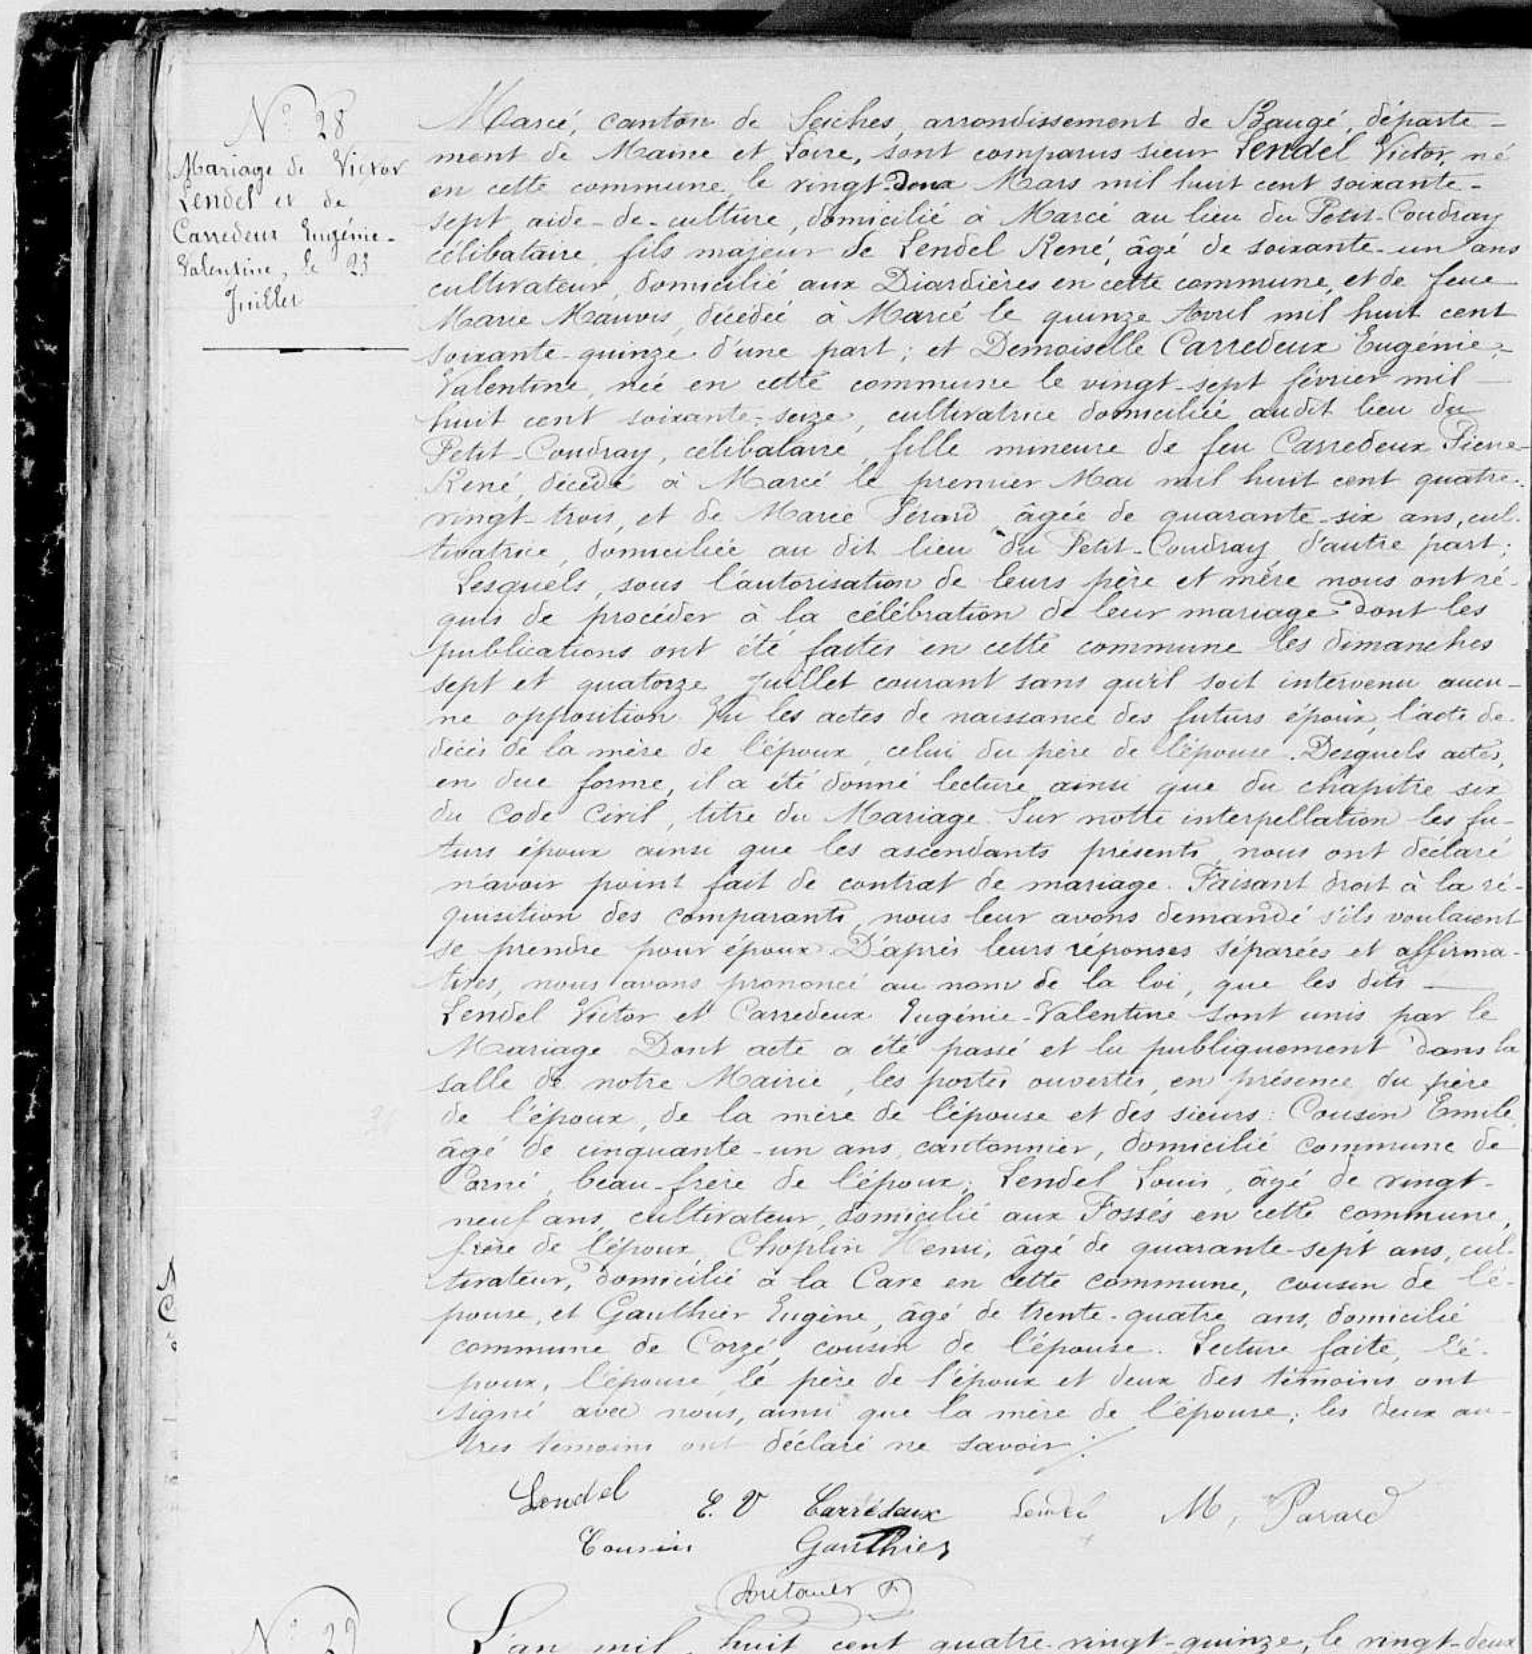 N° 28
Mariage de Victor
Lendel et de
Carredeux Eugénie-
Valentine, le 23
Juillet
Marcé, canton de Seiches, arrondissement de Baugé, départe-
ment de Maine et Loire, sont comparus sieur Lendel Victor, né
en cette commune, le vingt-deux Mars mil huit cent soixante-
sept aide-de-culture, domicilié à Marcé au lieu du Petit-Coudray
célibataire, fils majeur de Lendel René, âgé de soixante-un ans
cultivateur, domicilié aux Diardières en cette commune, et de feue
Marie Mauvis, décédée à Marcé le quinze Avril mil huit cent
soixante-quinze d'une part; et Demoiselle Carredeux Eugénie-
Valentine, née en cette commune le vingt-sept février mil
huit cent soixante-seize, cultivatrice domiciliée audit lieu du
Petit-Coudray, célibataire, fille mineure de feu Carredeux Pierre-
René, décédé à Marcé le premier Mai mil huit cent quatre-
vingt-trois, et de Marie, âgée de quarante-six ans, cul-
tivatrice, domiciliée au dit lieu du Petit-Coudray, d'autre part;
Lesquels, sous l'autorisation de leurs père et mère nous ont ré-
quis de procéder à la célébration de leur mariage dont les
publications ont été faites en cette commune les dimanches
sept et quatorze Juillet courant sans qu'il soit intervenu aucu-
ne opposition. Vu les actes de naissance des futurs époux, l'acte de
décès de la mère de l'époux, celui du père de l'épouse. Desquels actes,
en due forme, il a été donné lecture ainsi que du chapitre six
du Code Civil, titre du Mariage. Sur notre interpellation les fu-
turs époux ainsi que les ascendants présents, nous ont déclaré
n'avoir point fait de contrat de mariage. Faisant droit à la ré-
quisition des comparants, nous leur avons demandé s'ils voulaient
se prendre pour époux. D'après leurs réponses séparées et affirma-
tives, nous avons prononcé au nom de la loi, que les dits
Lendel Victor et Carredeux Eugénie-Valentine sont unis par le
Mariage. Dont acte a été passé et lu publiquement dans la
salle de notre Mairie, les portes ouvertes, en présence du père
de l'époux, de la mère de l'épouse et des sieurs: Cousin Emile,
âgé de cinquante-un ans, cantonnier, domicilié commune de
beau-frère de l'époux; Lendel Louis, âgé de vingt-
neuf ans, cultivateur, domicilié aux Fossés en cette commune,
frère de l'époux, Choplin Henri, âgé de quarante-sept ans, cul-
tivateur, domicilié à la Cave en cette commune, cousin de l'é-
pouse, et Gauthier Eugène, âgé de trente-quatre ans, domicilié
commune de Corzé, cousin de l'épouse. Lecture faite, l'é-
poux, l'épouse, le père de l'époux et deux des témoins ont
signé avec nous, ainsi que la mère de l'épouse; les deux au-
tres témoins ont déclaré ne savoir ./.
Lendel E. V Carrédeux Lendel M,
Cousin Gauthier
N° 29
L'an mil huit cent quatre-vingt-quinze, le vingt-deux